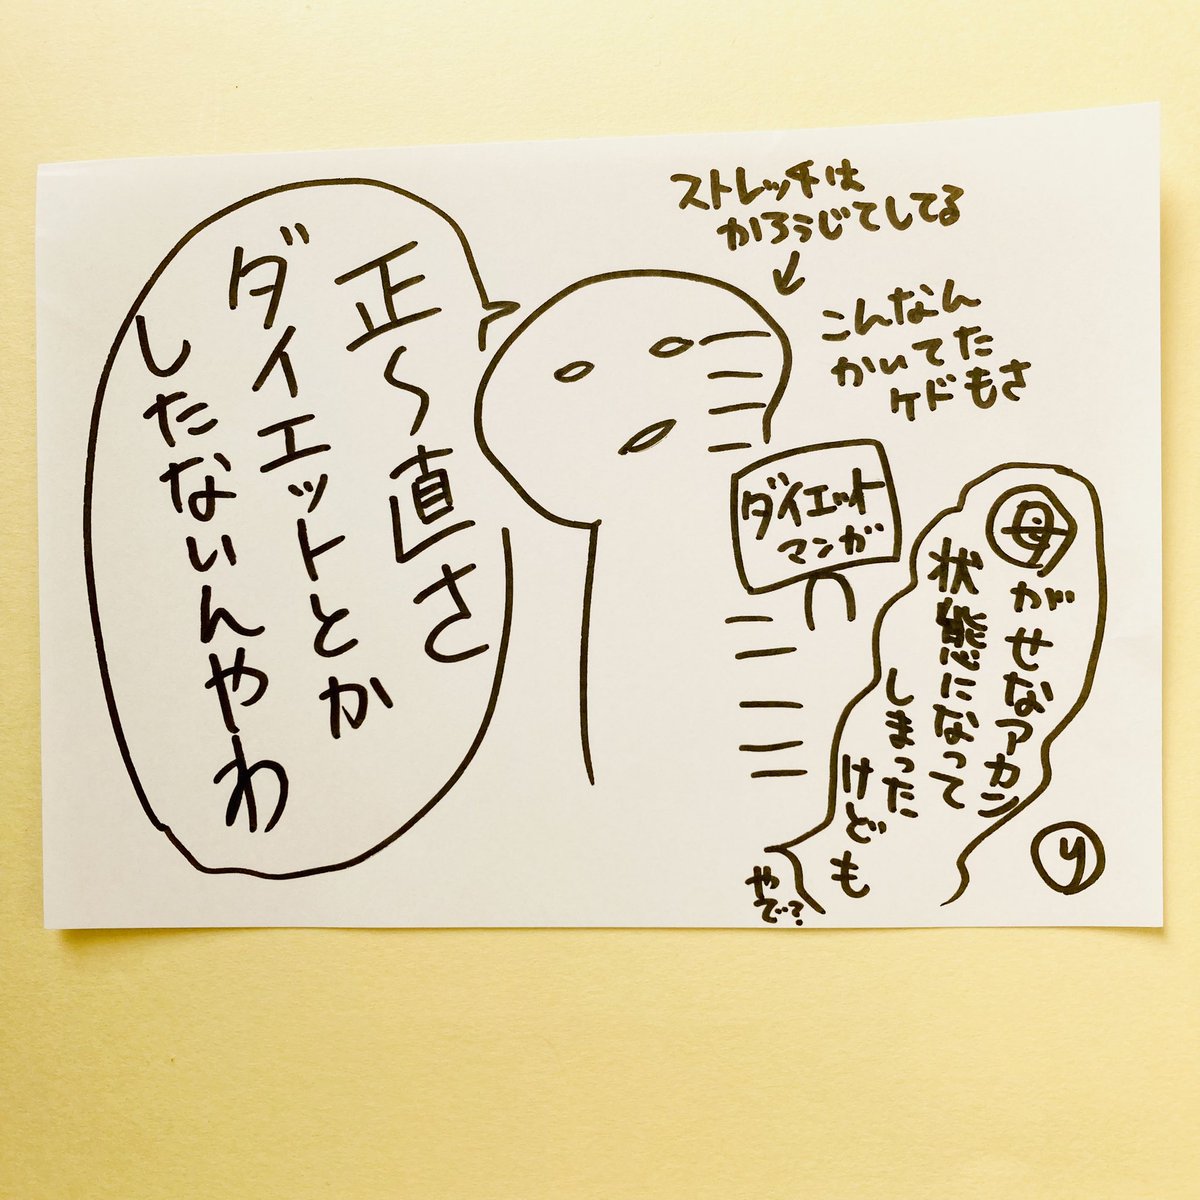 ストレッチは
かろうじてしてる
こんなん
かいてた
ケドもさ
ダイエット
マンガ
母がせなアカン
状態になって
しまった
けども
やで?
正〜直さ
ダイエットとか
したないんやわ
り